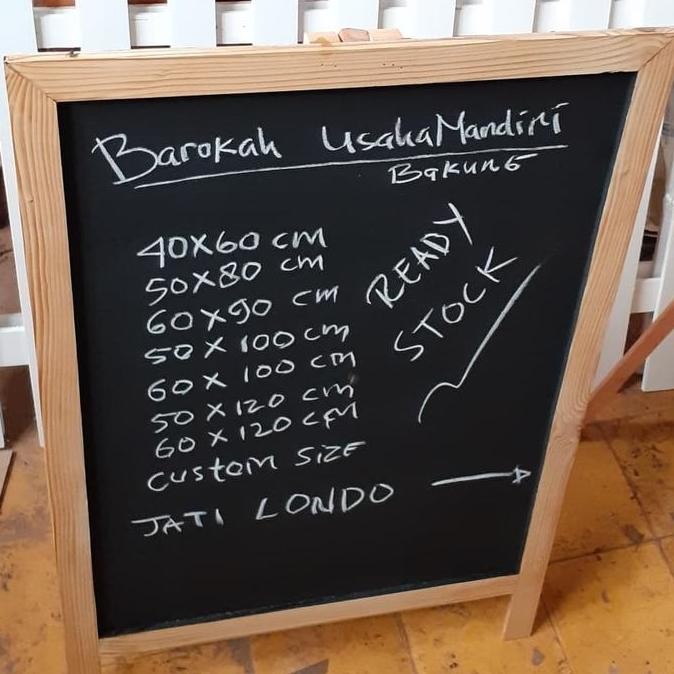 Barokah Usaha Mandiri
Bakung
40x60 cm
50x80 cm
60x90 cm
50 x 100 cm
60 x 100 cm
50 x 120 cm
60 x 120 cm
custom SIZE
READY
STOCK
JATI LONDO